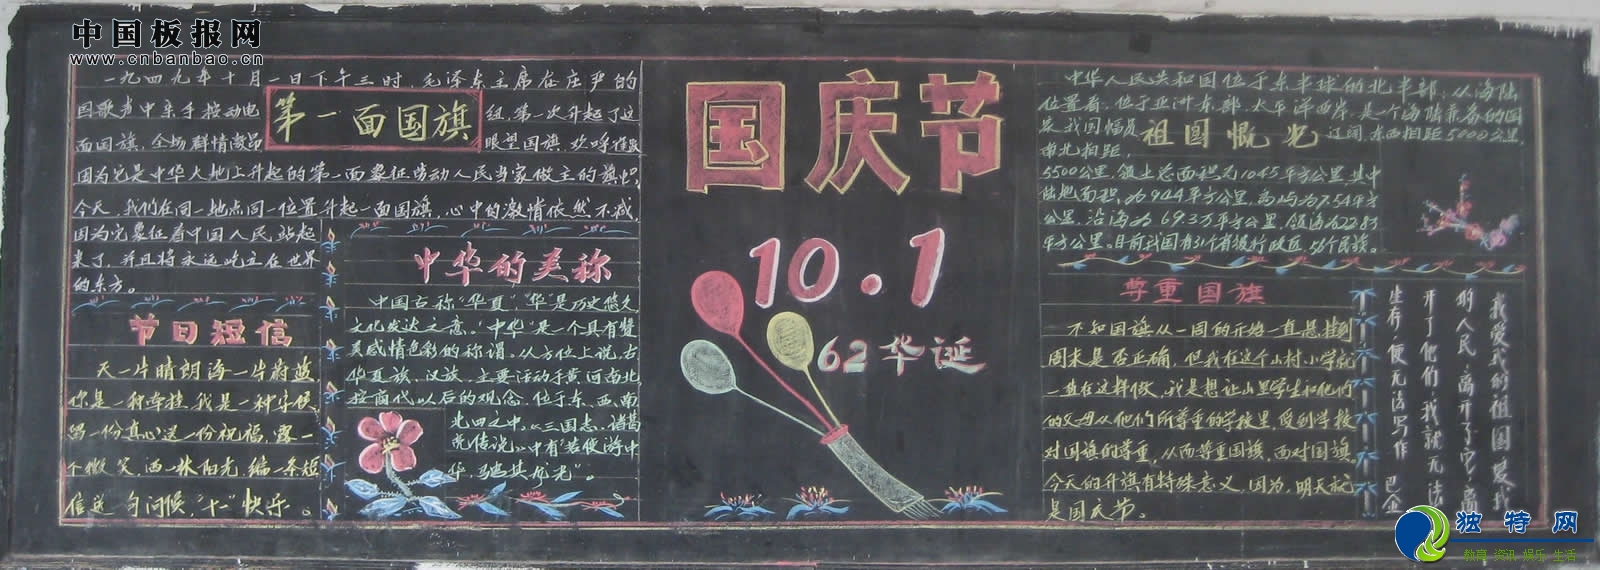 中国板报网
www.cnbanbao.cn
一九四九年十月一日下午三时，毛泽东主席在庄严的
国歌声中亲手按动电
第一面国旗
钮，第一次升起了这
面国旗，全场群情激昂
眼望国旗，欢呼雀跃
因为它是中华大地上升起的第一面象征劳动人民当家做主的旗帜。
今天，我们在同一地点同一位置升起一面国旗，心中的激情依然不减，
因为它象征着中国人民站起
来了，并且将永远屹立在世界
的东方。
节日短信
天一片晴朗，海一片蔚蓝，
你是一种牵挂，我是一种守候，
留一份真心，送一份祝福，露一
个微笑，洒一林阳光，编一条短
信送一句问候，“十一”快乐。
中华的美称
中国古称“华夏”，“华”是历史悠久
文化发达之意。“中华”是一个具有
灵感情色彩的称谓。从方位上说，古
华夏族、汉族，主要活动于黄河南北，
按商代以后的观念，位于东、西、南
北四之中。《三国志·诸葛
亮传说》中有“若使游中
华，骋其龙光”。
国庆节
10.1
62华诞
中华人民共和国位于东半球的北半部，从海陆
位置看，位于亚洲东部，太平洋西岸，是一个海陆兼备的国
家。我国幅员
祖国慨光
辽阔，东西相距5000公里，
南北相距，
5500公里，领土总面积为1045平方公里，其中
陆地面积，为944平方公里，岛屿为7.54平方
公里，沿海为693万平方公里，领海为22.8万
平方公里。目前我国有31个省级行政区，56个民族。
尊重国旗
不知国旗从一周的开始一直悬挂到
周末是否正确，但我在这个山村小学就
一直在这样做，我是想让山里学生和他们
的父母从他们所尊重的学校里，受到学校
对国旗的尊重，从而尊重国旗，面对国旗。
今天的升旗有特殊意义，因为，明天就
是国庆节。
我爱我的祖国，爱我
的人民，离开了它，离
开了他们，我就无法
生存，更无法写作
巴金
独特网
教育 资讯 娱乐 生活